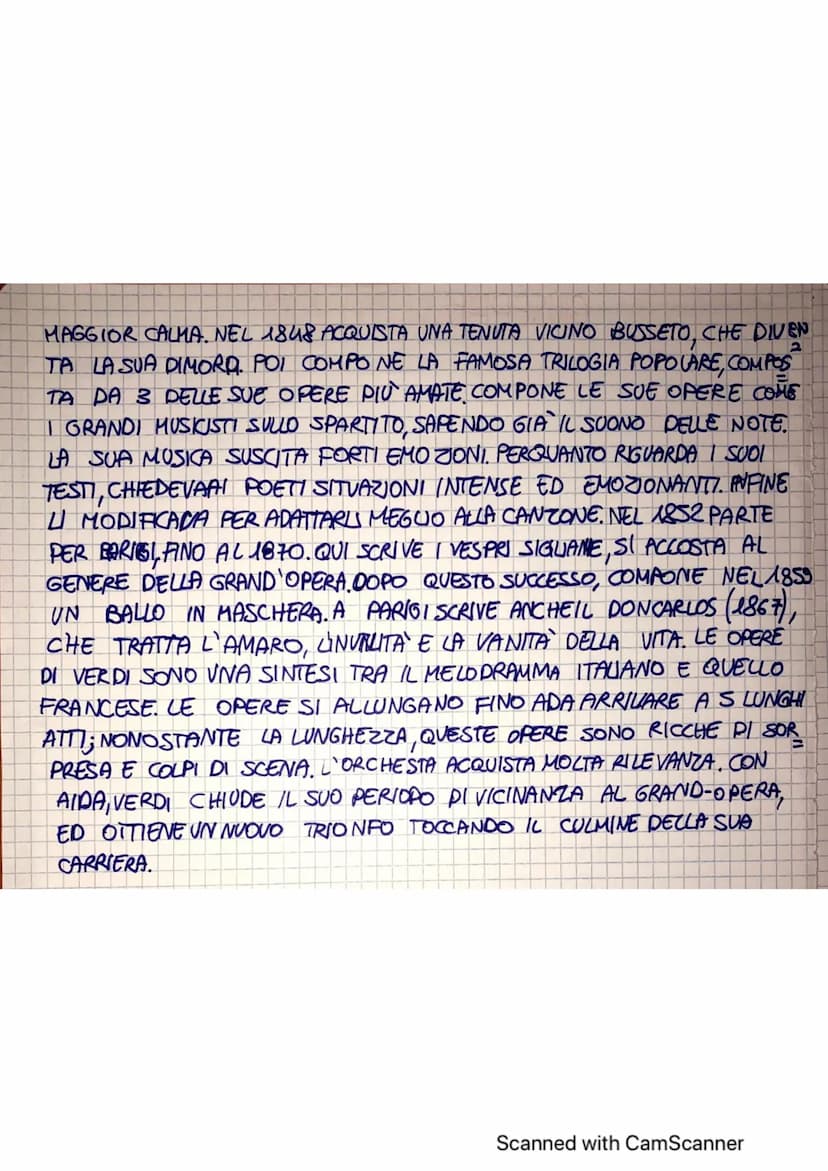 MAGGIOR CALMA. NEL 1848 ACQUISTA UNA TENUTA VICINO BUSSETO, CHE DIVEN=
TA LA SUA DIMORA. POI COMPONE LA FAMOSA TRILOGIA POPOLARE, COMPOS=
TA DA 3 DELLE SUE OPERE PIÙ AMATE. COMPONE LE SUE OPERE COME
I GRANDI MUSICISTI SULLO SPARTITO, SAPENDO GIA' IL SUONO DELLE NOTE.
LA SUA MUSICA SUSCITA FORTI EMOZIONI. PERQUANTO RIGUARDA I SUOI
TESTI, CHIEDEVA AI POETI SITUAZIONI INTENSE ED EMOZIONANTI. INFINE
LI MODIFICADA PER ADATTARLI MEGLIO ALLA CANZONE. NEL 1852 PARTE
PER PARIGI, FINO AL 1870. QUI SCRIVE I VESPRI SIGLIANE, SI ACCOSTA AL
GENERE DELLA GRAND'OPERA. DOPO QUESTO SUCCESSO, COMPONE NEL 1859
UN BALLO IN MASCHERA. A PARIGI SCRIVE ANCHE IL DON CARLOS (1867),
CHE TRATTA L'AMARO, L'INUTILITÀ E LA VANITÀ DELLA VITA. LE OPERE
DI VERDI SONO UNA SINTESI TRA IL MELODRAMMA ITALIANO E QUELLO
FRANCESE. LE OPERE SI ALLUNGANO FINO ADA ARRIVARE A 5 LUNGHI
ATTI; NONOSTANTE LA LUNGHEZZA, QUESTE OPERE SONO RICCHE DI SOR=
PRESA E COLPI DI SCENA. L'ORCHESTA ACQUISTA MOLTA RILEVANZA. CON
AIDA, VERDI CHIUDE IL SUO PERIODO DI VICINANZA AL GRAND-OPERA,
ED OTTIENE UN NUOVO TRIONFO TOCCANDO IL CULMINE DELLA SUA
CARRIERA.
Scanned with CamScanner